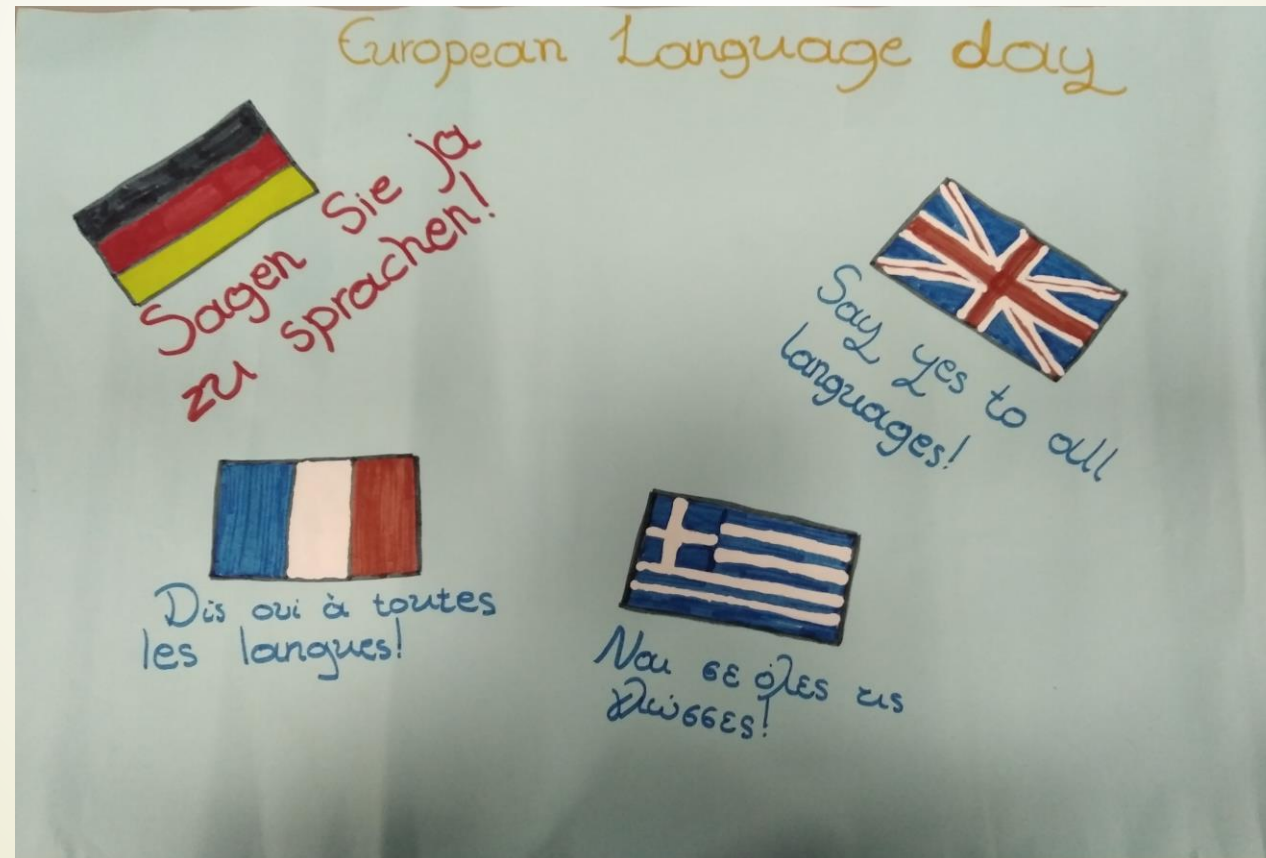 European Language day
Sagen Sie ja
zu sprachen!
Say yes to all
languages!
Dis oui à toutes
les langues!
Ναι σε όλες τις
γλώσσες!